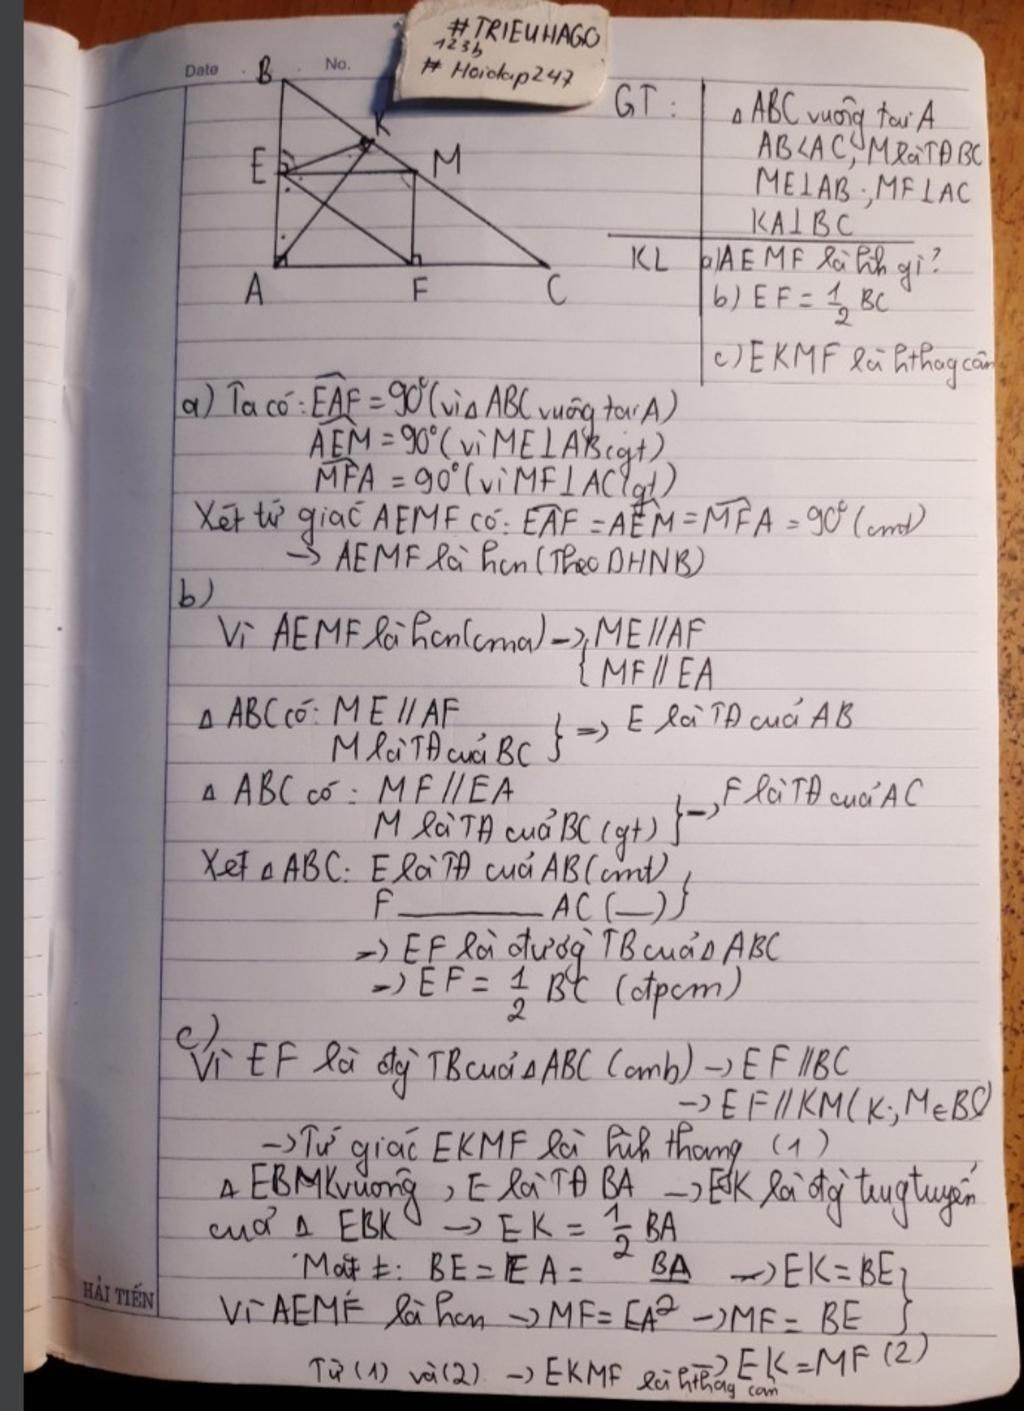 #TRIEUHAGO
123b
# Hoidap247
Date No.
B
K
E M
A F C
GT: Δ ABC vuông tại A
AB<AC, M là TĐ BC
ME⊥AB, MF⊥AC
KA⊥BC
KL a) AEMF là hình gì?
b) EF = 1/2 BC
c) EKMF là hthag cân
a) Ta có: EAF = 90° (vì Δ ABC vuông tại A)
AEM = 90° (vì ME⊥AB(gt)
MFA = 90° (vì MF⊥AC(gt)
Xét tứ giác AEMF có: EAF = AEM = MFA = 90° (cmt)
→ AEMF là hcn (Theo DHNB)
b)
Vì AEMF là hcn(cma) → { ME//AF
MF//EA
Δ ABC có: ME//AF
M là TĐ của BC } => E là TĐ của AB
Δ ABC có: MF//EA
M là TĐ của BC (gt) } → F là TĐ của AC
Xét Δ ABC: E là TĐ của AB (cmt)
F ———— AC (—) }
→ EF là đường TB của Δ ABC
→ EF = 1/2 BC (đpcm)
c)
Vì EF là đg TB của Δ ABC (cmb) → EF//BC
→ EF//KM (K; M∈BC)
→ Tứ giác EKMF là hình thang (1)
vuông, E là TĐ BA → EK là đg trung tuyến
của Δ EBK → EK = 1/2 BA
Mặt ≠: BE = EA = BA/2 → EK = BE }
Vì AEMF là hcn → MF = EA → MF = BE
→ EK = MF (2)
Từ (1) và (2) → EKMF là hthag cân
HẢI TIẾN